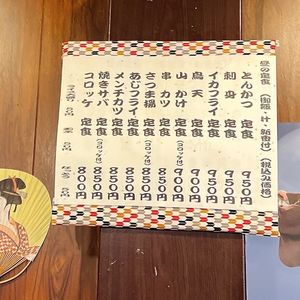 昼の定食（御飯・汁・新香付）（税込み価格）
とんかつ 定食 950円
刺身 定食 950円
イカフライ 定食 950円
鳥天 定食 900円
山かけ 定食 900円
串カツ 定食（コロッケ付） 850円
さつま揚 定食 850円
あじフライ 定食 850円
メンチカツ 定食（コロッケ付） 850円
焼きサバ 定食 850円
コロッケ 定食 800円